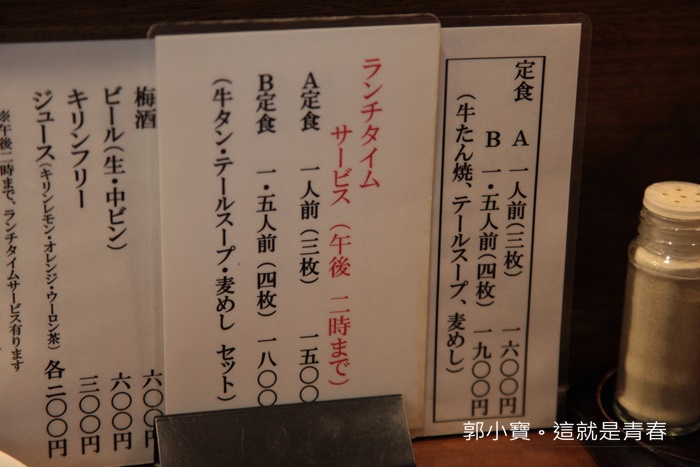 定食 A 一人前(三枚) 一六〇〇円
B 一・五人前(四枚) 一九〇〇円
(牛たん焼、テールスープ、麦めし)
ランチタイム
サービス (午後 二時まで)
A定食 一人前(三枚) 一五〇〇
B定食 一・五人前(四枚) 一八〇〇
(牛タン・テールスープ・麦めし セット)
梅酒 六〇〇円
ビール(生・中ビン) 六〇〇円
キリンフリー 三〇〇円
ジュース(キリンレモン・オレンジ・ウーロン茶) 各二〇〇円
※午後二時まで、ランチタイムサービス有ります
郭小寶。這就是青春